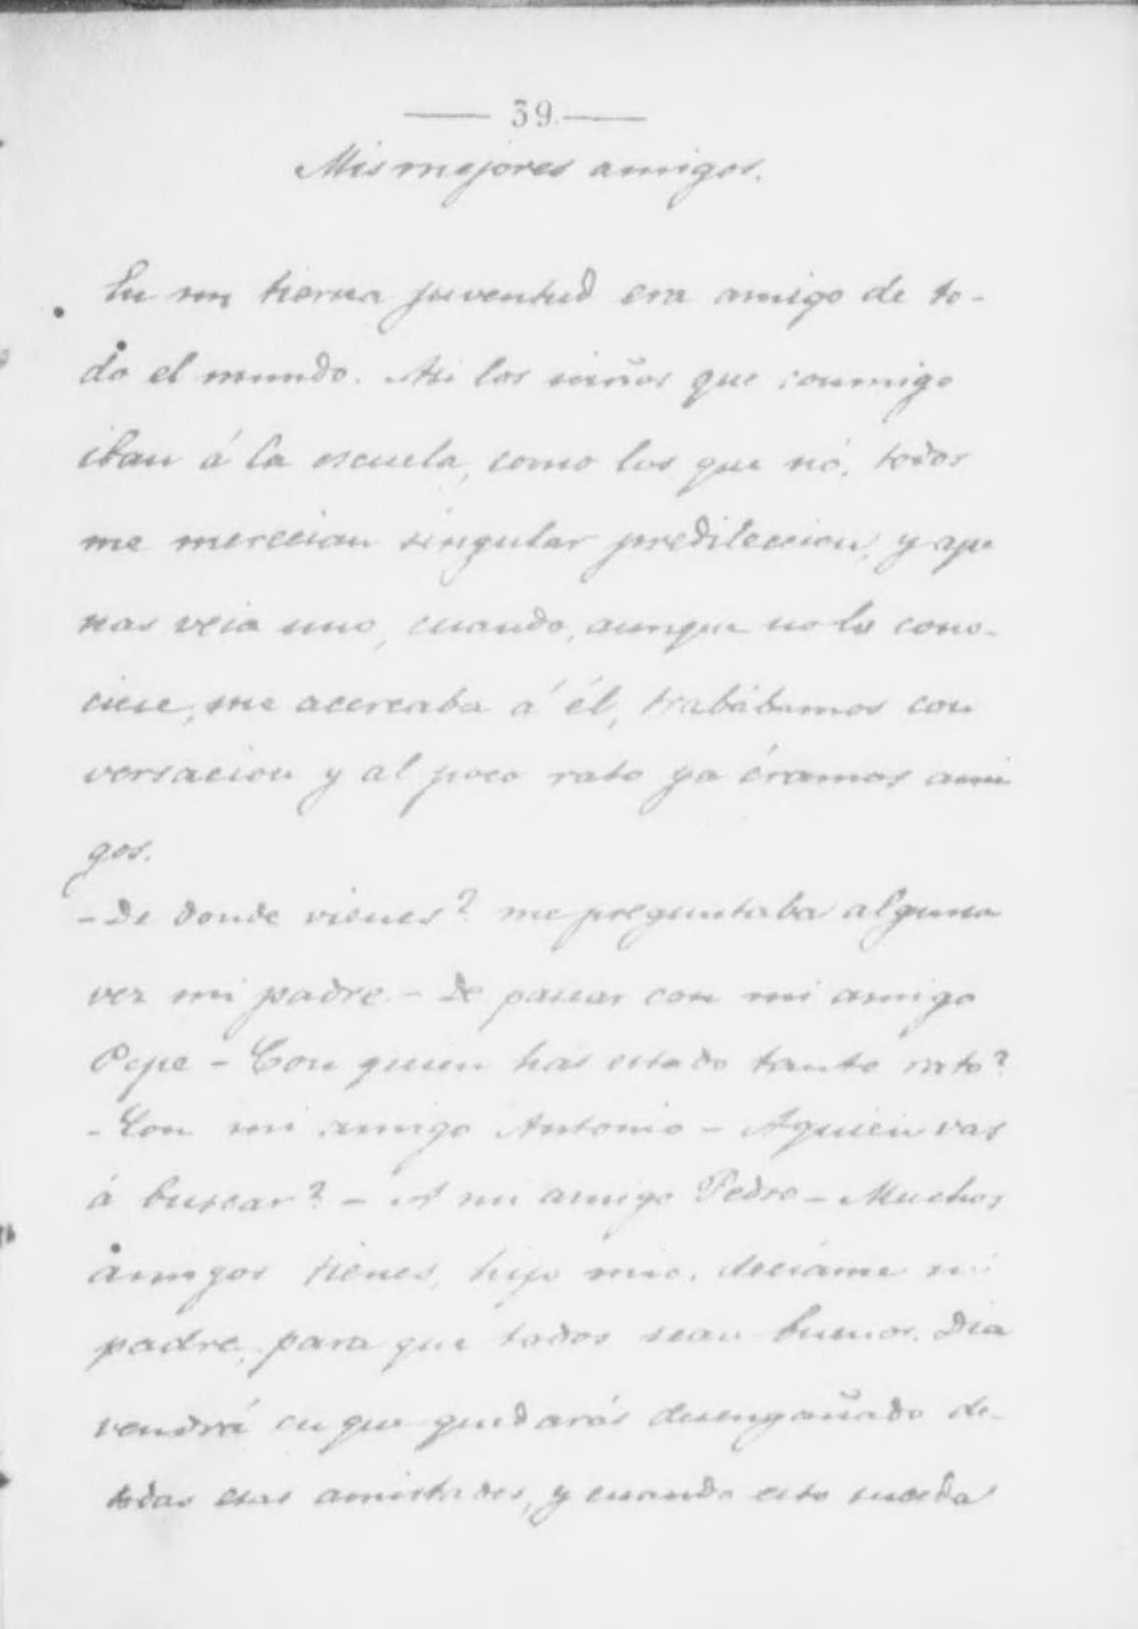 39.
Mis mejores amigos.
En mi tierna juventud era amigo de to-
do el mundo. Asi los niños que conmigo
iban á la escuela, como los que nó, todos
me merecian singular predileccion, y ape
nas veia uno, cuando, aunque no lo cono-
ciese, me acercaba á él, trabábamos con
versacion y al poco rato ya éramos ami
gos.
- De donde vienes? me preguntaba alguna
vez mi padre. - De pasear con mi amigo
Pepe - Con quien has estado tanto rato?
- Con mi amigo Antonio - A quien vas
á buscar? - A mi amigo Pedro - Muchos
amigos tienes, hijo mio, deciame mi
padre, para que todos sean buenos. Dia
vendrá en que quedarás desengañado de
todas esas amistades, y cuando esto suceda